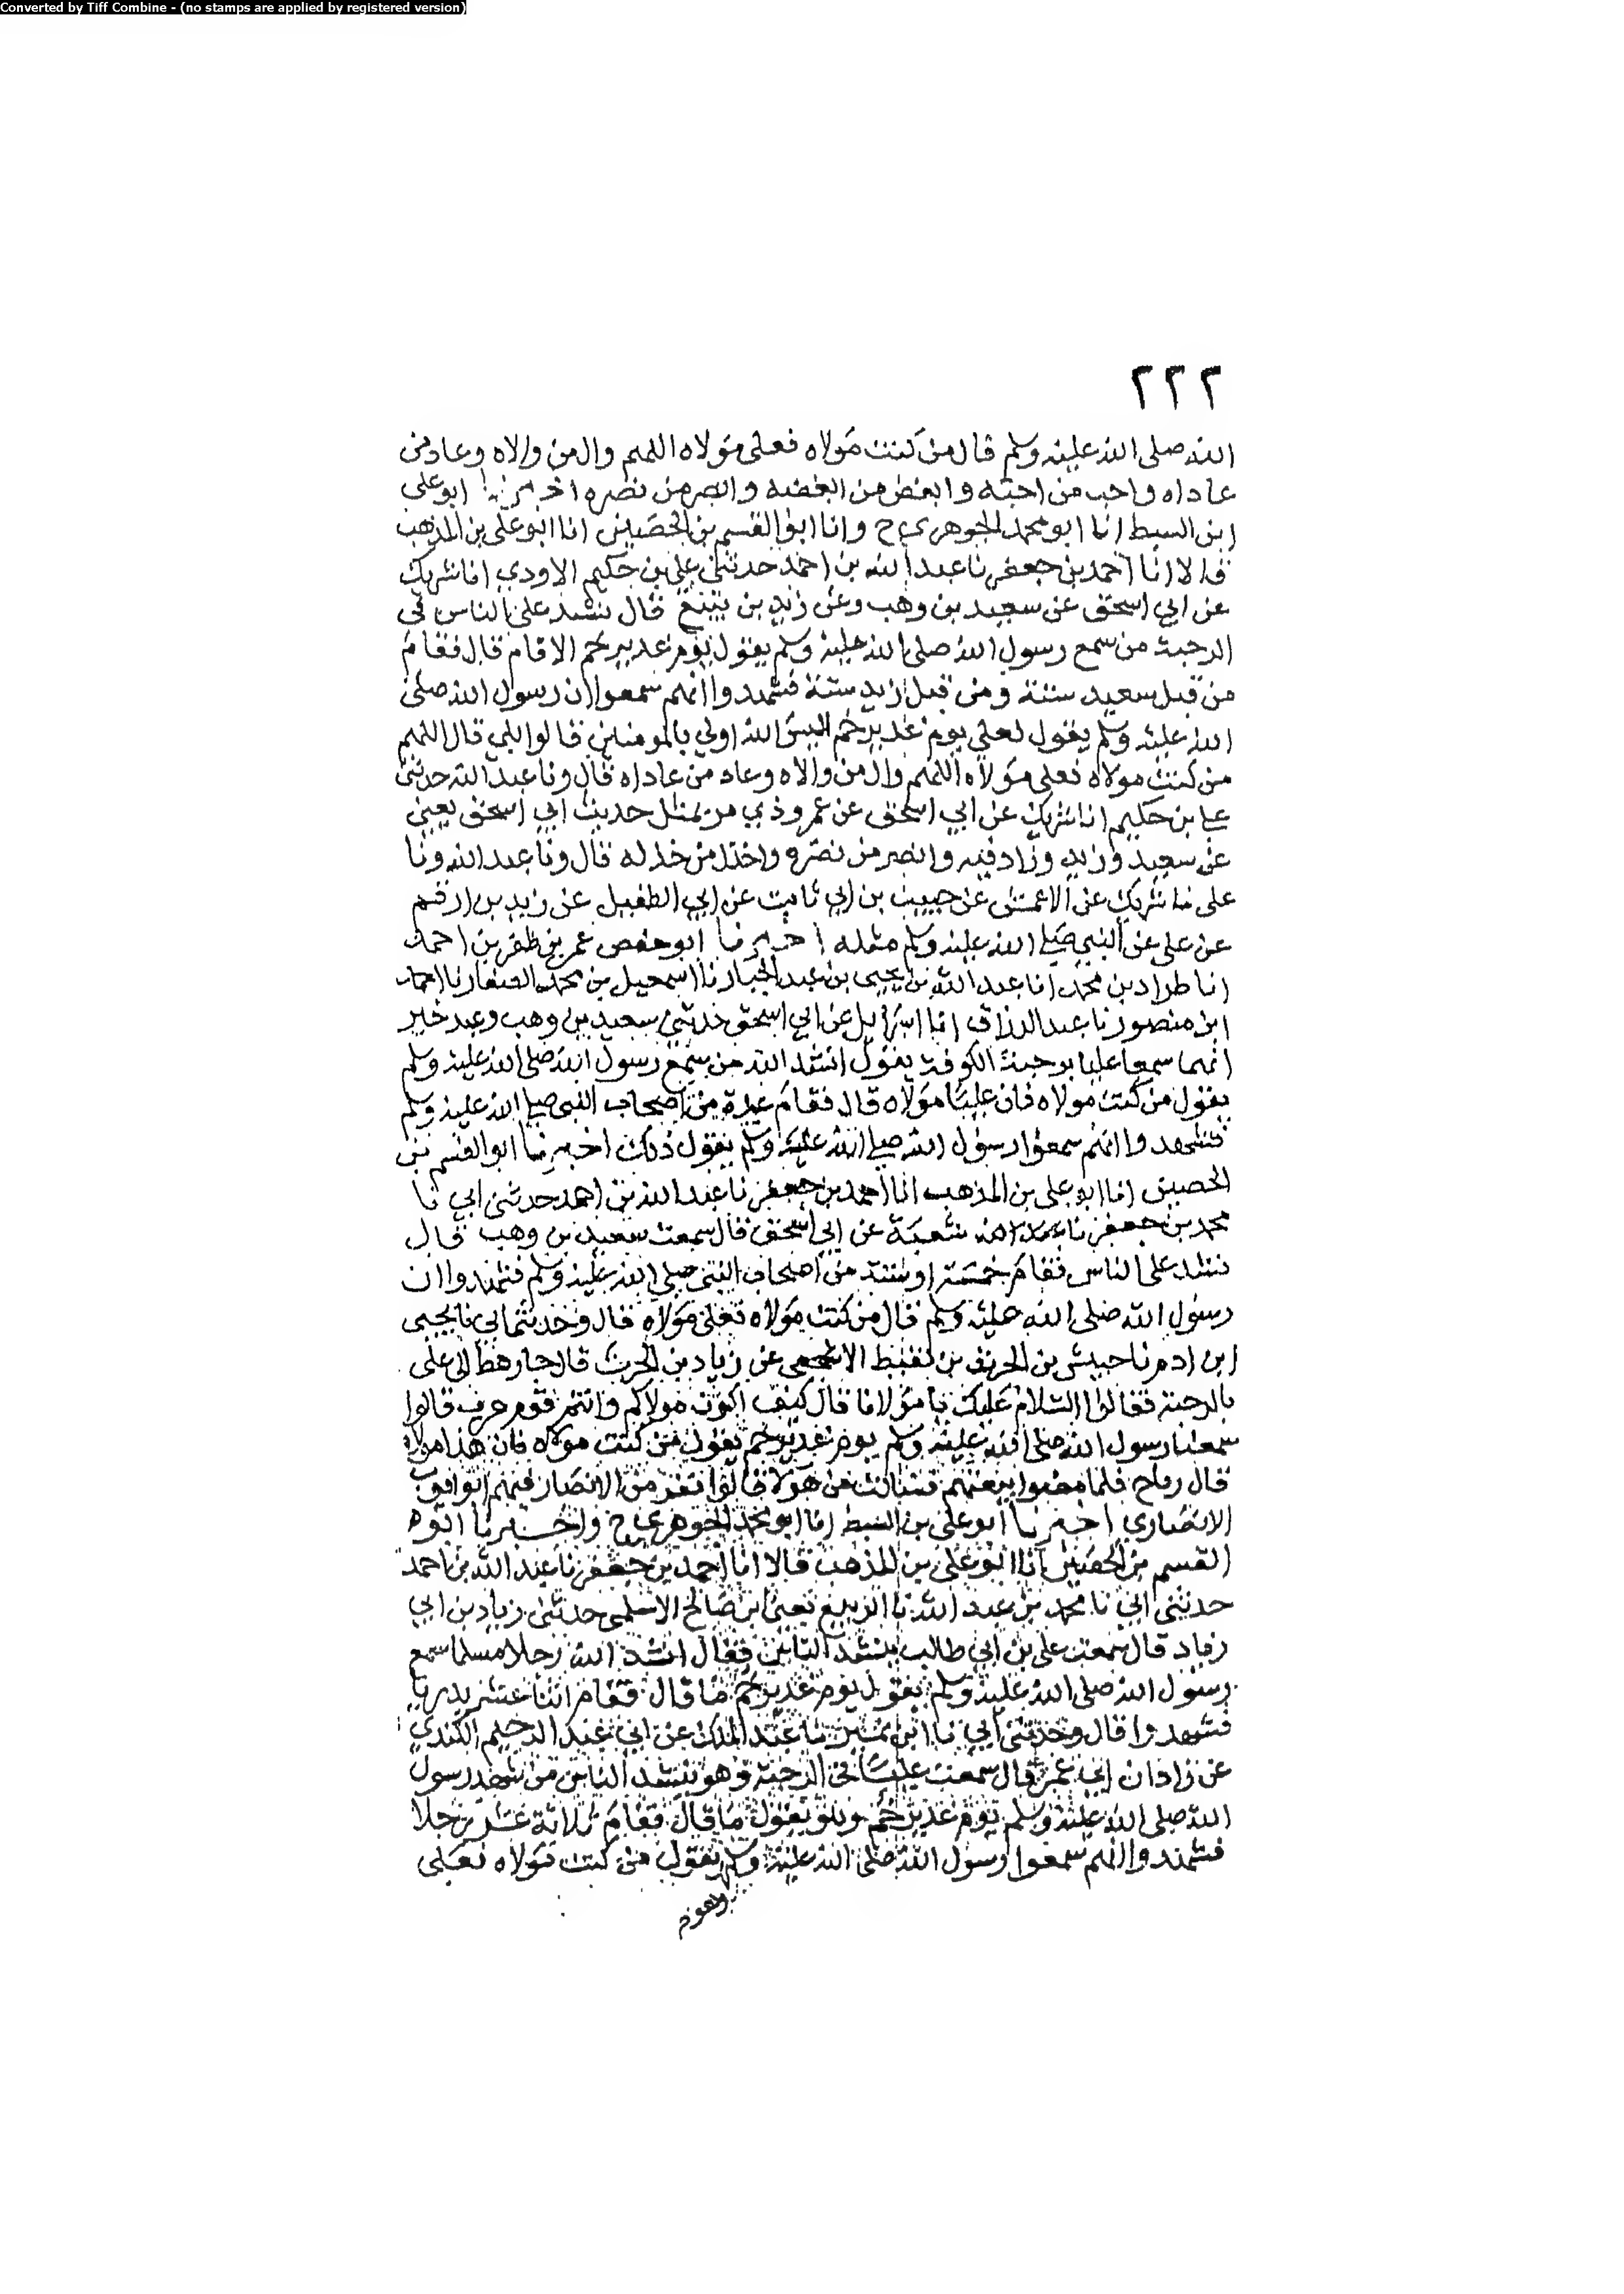 Converted by Tiff Combine - (no stamps are applied by registered version)
٢٢٢
الله صلى الله عليه وسلم قال من كنت مولاه فعلى مولاه اللهم وال من والاه وعاد من
عاداه واحب من احبه وابغض من ابغضه وانصر من نصره اخبرنا ابو على
ابن السبط انا ابو محمد الجوهرى ح وانا ابو القسم بن الحصين انا ابو على بن المذهب
قالا انا احمد بن جعفر نا عبد الله بن احمد حدثنى على بن حكيم الاودي انا شريك
عن ابي اسحق عن سعيد بن وهب وعن زيد بن يثيع قال نشد على الناس في
الرحبة من سمع رسول الله صلى الله عليه وسلم يقول يوم غدير خم الا قام قال فقام
من قبل سعيد ستة ومن قبل زيد ستة فشهدوا انهم سمعوا ان رسول الله صلى
الله عليه وسلم يقول لعلي يوم غدير خم اليس الله اولي بالمومنين قالوا بلي قال اللهم
من كنت مولاه فعلى مولاه اللهم وال من والاه وعاد من عاداه قال ونا عبد الله حدثنى
على بن حكيم انا شريك عن ابي اسحق عن عمرو ذي مر بمثل حديث ابي اسحق يعنى
عن سعيد وزيد وزاد فيه وانصر من نصره واخذل من خذله قال ونا عبد الله ونا
على نا شريك عن الاعمش عن حبيب بن ابي ثابت عن ابي الطفيل عن زيد بن ارقم
عن على عن النبي صلى الله عليه وسلم مثله اخبرنا ابو حفص عمر بن ظفر بن احمد
انا طراد بن محمد انا عبد الله بن يحيى بن عبد الجبار نا اسمعيل بن محمد الصفار نا احمد
ابن منصور نا عبد الرزاق انا اسرائيل عن ابي اسحق حدثني سعيد بن وهب وعبد خير
انهما سمعا عليا برحبة الكوفة يقول انشد الله من سمع رسول الله صلى الله عليه وسلم
يقول من كنت مولاه فان عليا مولاه قال فقام عدة من اصحاب النبي صلى الله عليه وسلم
فشهدوا انهم سمعوا رسول الله صلى الله عليه وسلم يقول ذلك اخبرنا ابو القسم بن
الحصين انا ابو على بن المذهب انا احمد بن جعفر نا عبد الله بن احمد حدثني ابي نا
محمد بن جعفر نا شعبة عن ابي اسحق قال سمعت سعيد بن وهب قال
نشد على الناس فقام خمسة او ستة من اصحاب النبي صلى الله عليه وسلم فشهدوا ان
رسول الله صلى الله عليه وسلم قال من كنت مولاه فعلى مولاه قال وحدثنا ابي نا يحيى
ابن ادم نا حبيش بن الحرث بن لقيط الاشجعى عن زياد بن الحرث قال جا رهط الى على
بالرحبة فقالوا السلام عليك يا مولانا قال كيف اكون مولاكم وانتم قوم عرب قالوا
سمعنا رسول الله صلى الله عليه وسلم يوم غدير خم يقول من كنت مولاه فان هذا مولاه
قال رباح فلما مضوا تبعتهم فسالت من هولا قالوا نفر من الانصار فيهم ابو ايوب
الانصاري اخبرنا ابو على بن السبط انا ابو محمد الجوهري ح واخبرنا ابو
القسم بن الحصين انا ابو على بن المذهب قالا انا احمد بن جعفر نا عبد الله بن احمد
حدثني ابي نا محمد بن عبد الله نا الربيع يعنى ابن صالح الاسلمى حدثنى زياد بن ابي
زياد قال سمعت على بن ابي طالب ينشد الناس فقال انشد الله رجلا مسلما سمع
رسول الله صلى الله عليه وسلم يقول يوم غدير خم ما قال فقام اثنا عشر بدريا
فشهدوا قال وحدثنى ابي نا ابن نمير نا عبد الملك عن ابي عبد الرحيم الكندي
عن زاذان ابي عمر قال سمعت عليا فى الرحبة وهو ينشد الناس من شهد رسول
الله صلى الله عليه وسلم يوم غدير خم وهو يقول ما قال فقام ثلاثة عشر رجلا
فشهدوا انهم سمعوا رسول الله صلى الله عليه وسلم يقول من كنت مولاه فعلى